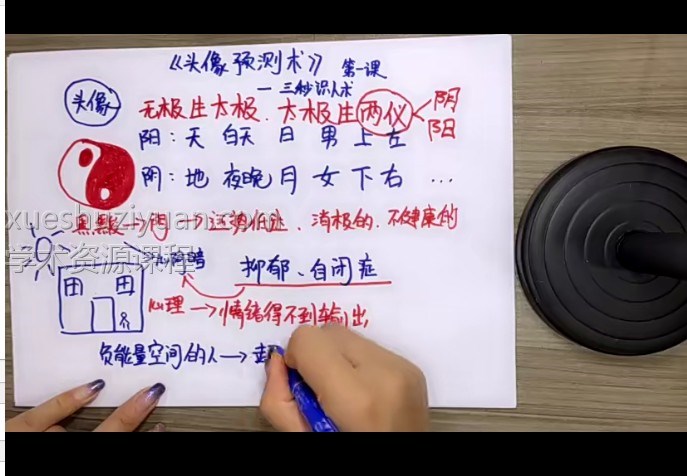 《头像预测术》 第一课
— 三秒识人术
头像
无极生太极.太极生两仪 阴
阳
阳：天 白天 日 男 上 左
阴：地 夜晚 月 女 下 右 …
黑点 → 阴 → 运势低处、消极的、不健康的
xueshuziyuan.com
学术资源课程
暗
抑郁、自闭症
心理 → 情绪得不到输出
负能量空间的人 →